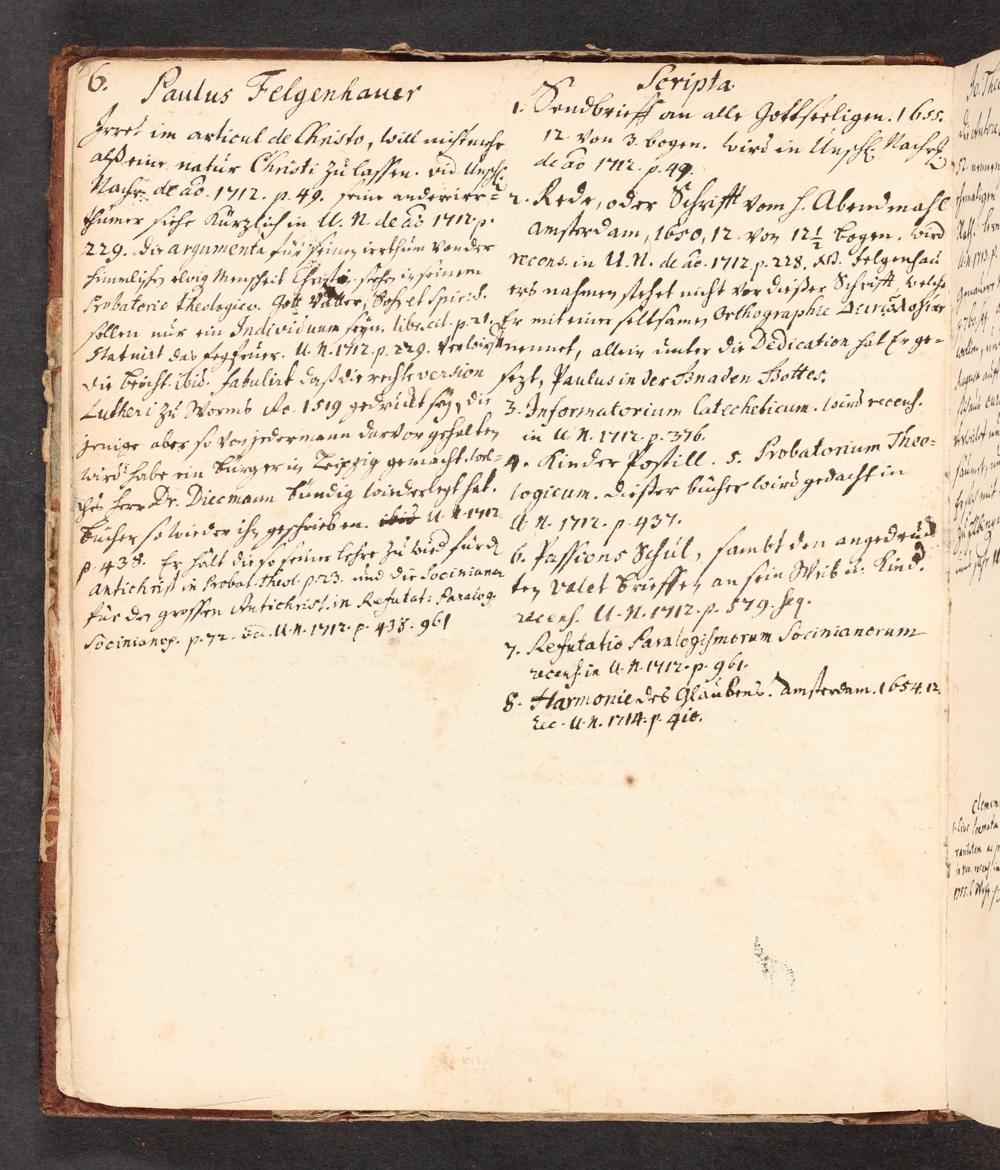 6.
Paulus Felgenhauer
Irret im articul de Christo, will nicht mehr
alß eine natur Christi zu lassen. vid. Unsch.
Nachr. de ao. 1712. p. 49. seine andere irr=
thümer siehe kürzlich in U. N. de ao 1712. p.
229. die argumenta für seinen irrthum von der
himmlischen ewig Menschheit Christi siehe in seinem
Probatorio theologico. Gott Vatter, Sohn et Spirit. S.
sollen nur ein Individuum seyn. libr. cit. p. 21.
statuirt das fegfeuer. U. N. 1712. p. 229. verwirft
die beicht. ibid. fabulirt daß die rechte version
Lutheri zu Worms Ao. 1519 gedruckt sey, die
jenige aber so von jedermann darvor gehalten
wird habe ein bürger in Leipzig gemacht. wel=
ches Herr Dr. Diecmann bündig wiederlegt hat.
bücher so wieder ihn geschrieben. ibid U. N. 1712
p. 438. Er hält die so seiner lehre zu wied. für d.
Antichrist in Probat. theol. p. 23. und die Socinianer
für den grossen Antichrist. in Refutat: Paralog.
Socinianor. p. 72. vid. U. N. 1712. p. 438. 961
Scripta
1. Sendbrieff an alle Gottseeligen. 1655.
12. von 3. bogen. wird in Unsch. Nachr.
de ao 1712. p. 49.
2. Rede, oder Schrifft vom H. Abendmahl
Amsterdam, 1650, 12. von 12 1/2 bogen. wird
recens. in U. N. de ao. 1712. p. 228. NB. Felgenhau
ers nahmen stehet nicht vor dießer Schrifft, welche
Er mit einer seltsamen Orthographie
nennet, allein unter die Dedication hat Er ge=
sezt, Paulus in der Gnaden Gottes.
3. Informatorium Catecheticum. wird recens.
in U. N. 1712. p. 376.
4. Kinder Postill. 5. Probatorium Theo=
logicum. dießer bücher wird gedacht in
U. N. 1712. p. 437.
6. Passions Schul, sambt den angedruck
ten Valet brieffen an sein Weib u. Kind.
recens. U. N. 1712. p. 579. seq.
7. Refutatio Paralogismorum Socinianorum
recens. in U. N. 1712. p. 961.
8. Harmonie des Glaubens. Amsterdam. 1654. 12.
Rec. U. N. 1714. p. 410.